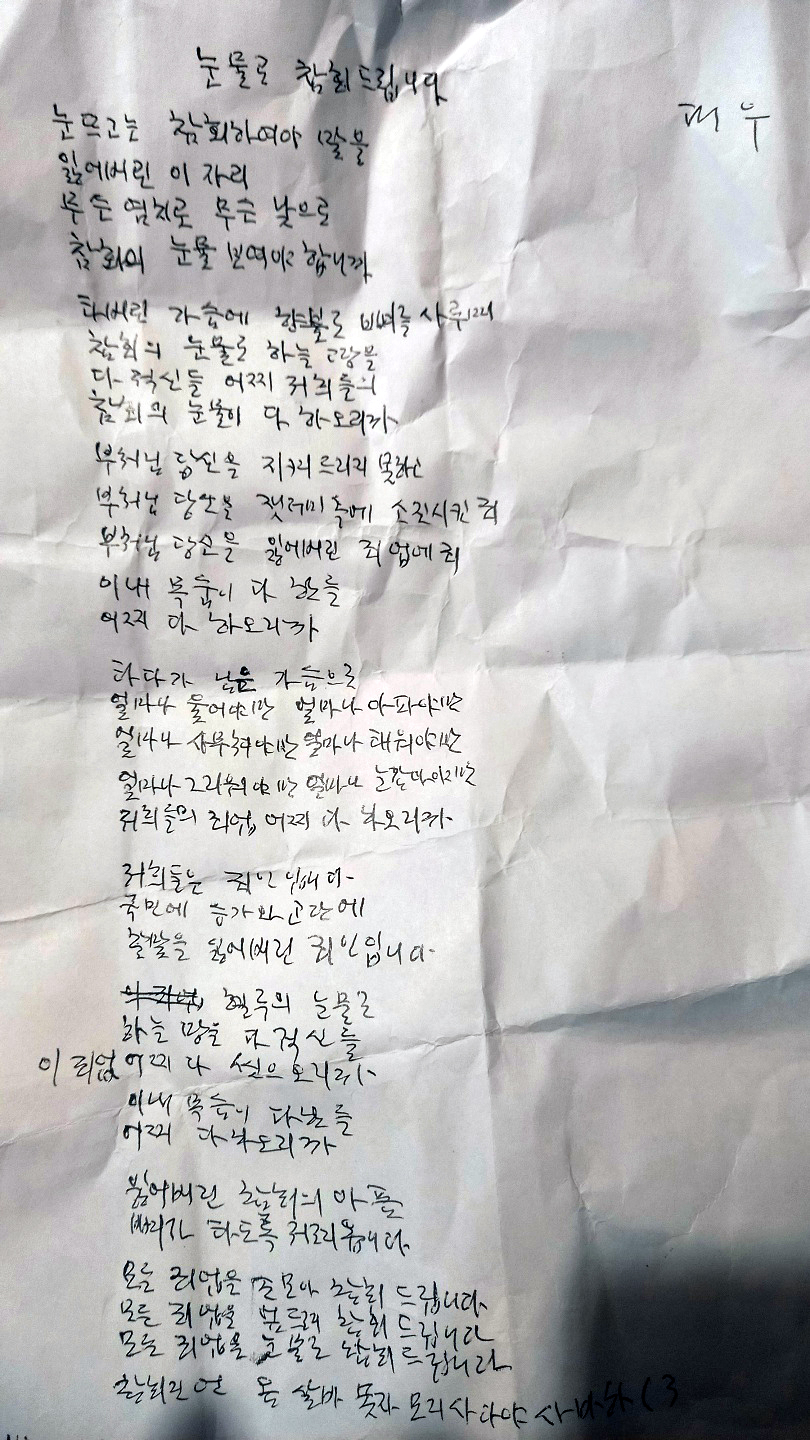 눈물로 참회드립니다
눈뜨고는 참회하여야 말을
잃어버린 이 자리
무슨 염치로 무슨 낯으로
참회의 눈물 보여야 합니까
타버린 가슴에 향불로 뼈를 사루며
참회의 눈물로 하늘 땅을
다 적신들 어찌 저희들의
참회의 눈물이 다 하오리까
부처님 당신을 지켜드리지 못하고
부처님 당신을 잿더미속에 소진시킨 죄
부처님 당신을 잃어버린 죄업에
이내 목숨이 다 한들
어찌 다 하오리까
타다가 남은 가슴으로
얼마나 울어야만 얼마나 아파야만
얼마나 사무쳐야만 얼마나 태워야만
얼마나 그리워야만 얼마나
저희들의 죄업 어찌 다 하오리까
저희들은 죄인입니다
국민에 승가와 교단에
잃어버린 죄인입니다
혈루의 눈물로
하늘 땅을 다 적신들
이 죄업 어찌 다 씻으오리까
이내 목숨이 다한들
어찌 다하오리까
잃어버린 참회의 아픔
뼈가 타도록 저려옵니다
모든 죄업을 손모아 참회 드립니다
모든 죄업을 엎드려 참회 드립니다
모든 죄업을 눈물로 참회 드립니다
참회진언 옴 살바 못자 모지사다야 사바하 (3